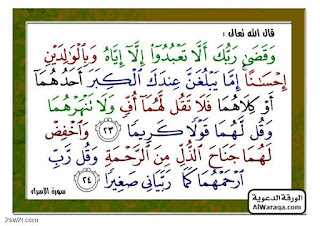 قال الله تعالى :
وَقَضَىٰ رَبُّكَ أَلَّا تَعْبُدُوٓا۟ إِلَّآ إِيَّاهُ وَبِٱلْوَٰلِدَيْنِ
إِحْسَٰنًا إِمَّا يَبْلُغَنَّ عِندَكَ ٱلْكِبَرَ أَحَدُهُمَآ
أَوْ كِلَاهُمَا فَلَا تَقُل لَّهُمَآ أُفٍّ وَلَا تَنْهَرْهُمَا
وَقُل لَّهُمَا قَوْلًا كَرِيمًا ٢٣ وَٱخْفِضْ
لَهُمَا جَنَاحَ ٱلذُّلِّ مِنَ ٱلرَّحْمَةِ وَقُل رَّبِّ
ٱرْحَمْهُمَا كَمَا رَبَّيَانِى صَغِيرًا ٢٤
سورة الإسراء
الورقة الدعوية
AlWaraqa.com
2sw2r.com